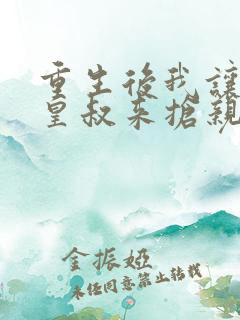 重生後我讓
皇叔來搶親
金振婭
未经同意禁止转载